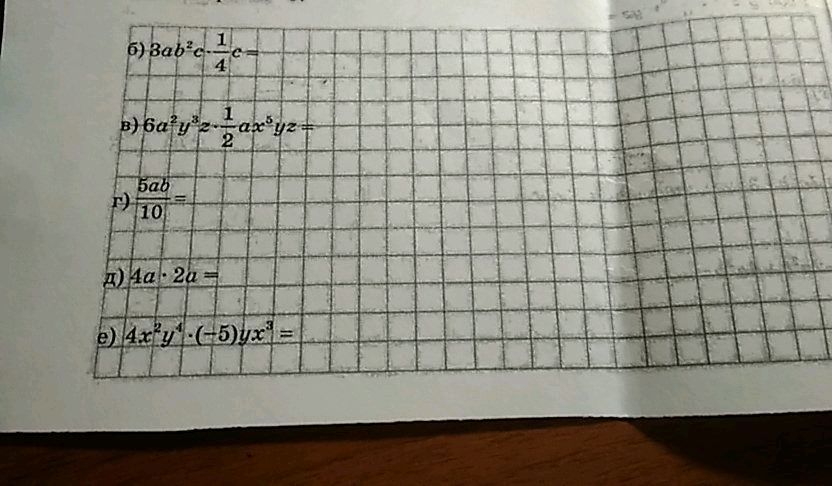 б) 3ab²c · 1/4 c =
в) 6a²y³z · 1/2 ax⁵yz =
г) 5ab/10 =
д) 4a · 2a =
е) 4x²y⁴ · (−5)yx³ =